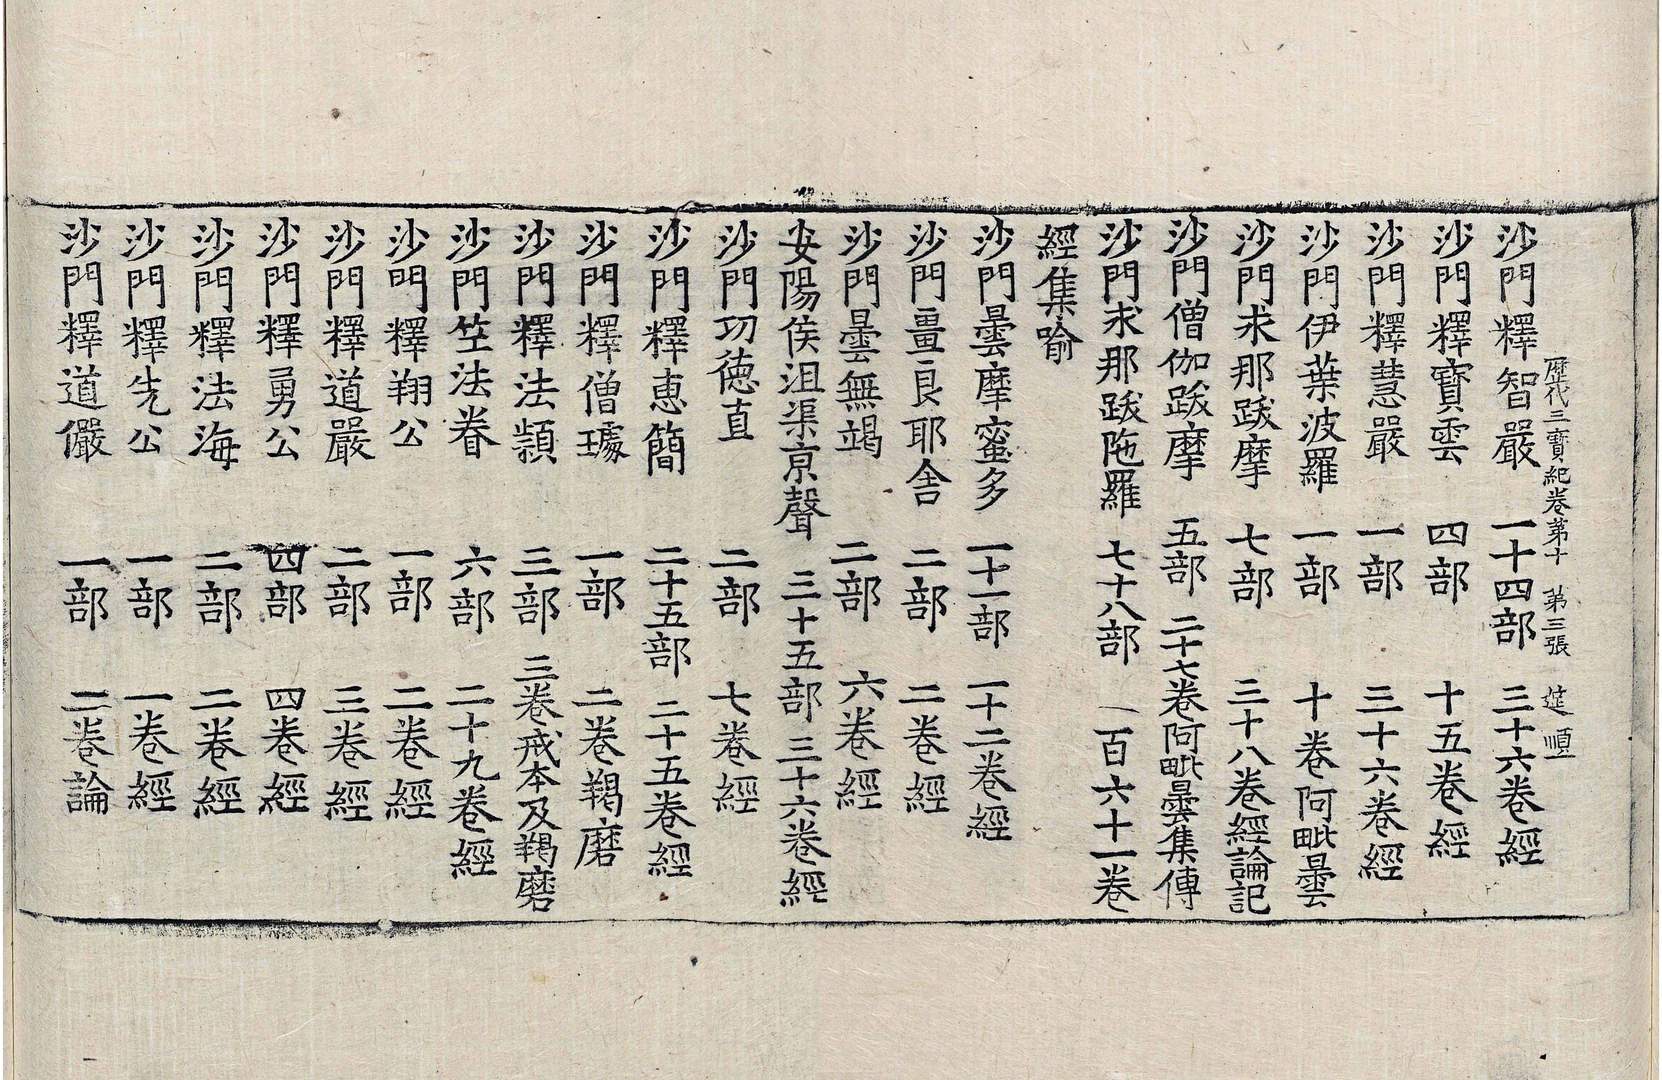 歷代三寶紀卷第十 第三張 莚順
沙門釋智嚴 一十四部 三十六卷經
沙門釋寶雲 四部 十五卷經
沙門釋慧嚴 一部 三十六卷經
沙門伊葉波羅 一部 十卷阿毗曇
沙門求那跋摩 七部 三十八卷經論記
沙門僧伽跋摩 五部 二十七卷阿毗曇集傳
沙門求那跋陁羅 七十八部 一百六十一卷
經集喻
沙門曇摩蜜多 一十一部 一十二卷經
沙門畺良耶舍 二部 二卷經
沙門曇無竭 二部 六卷經
安陽侯沮渠京聲 三十五部 三十六卷經
沙門功德直 二部 七卷經
沙門釋惠簡 二十五部 二十五卷經
沙門釋僧璩 一部 二卷羯磨
沙門釋法頴 三部 三卷戒本及羯磨
沙門竺法眷 六部 二十九卷經
沙門釋翔公 一部 二卷經
沙門釋道嚴 二部 三卷經
沙門釋勇公 四部 四卷經
沙門釋法海 二部 二卷經
沙門釋先公 一部 一卷經
沙門釋道儼 一部 二卷論